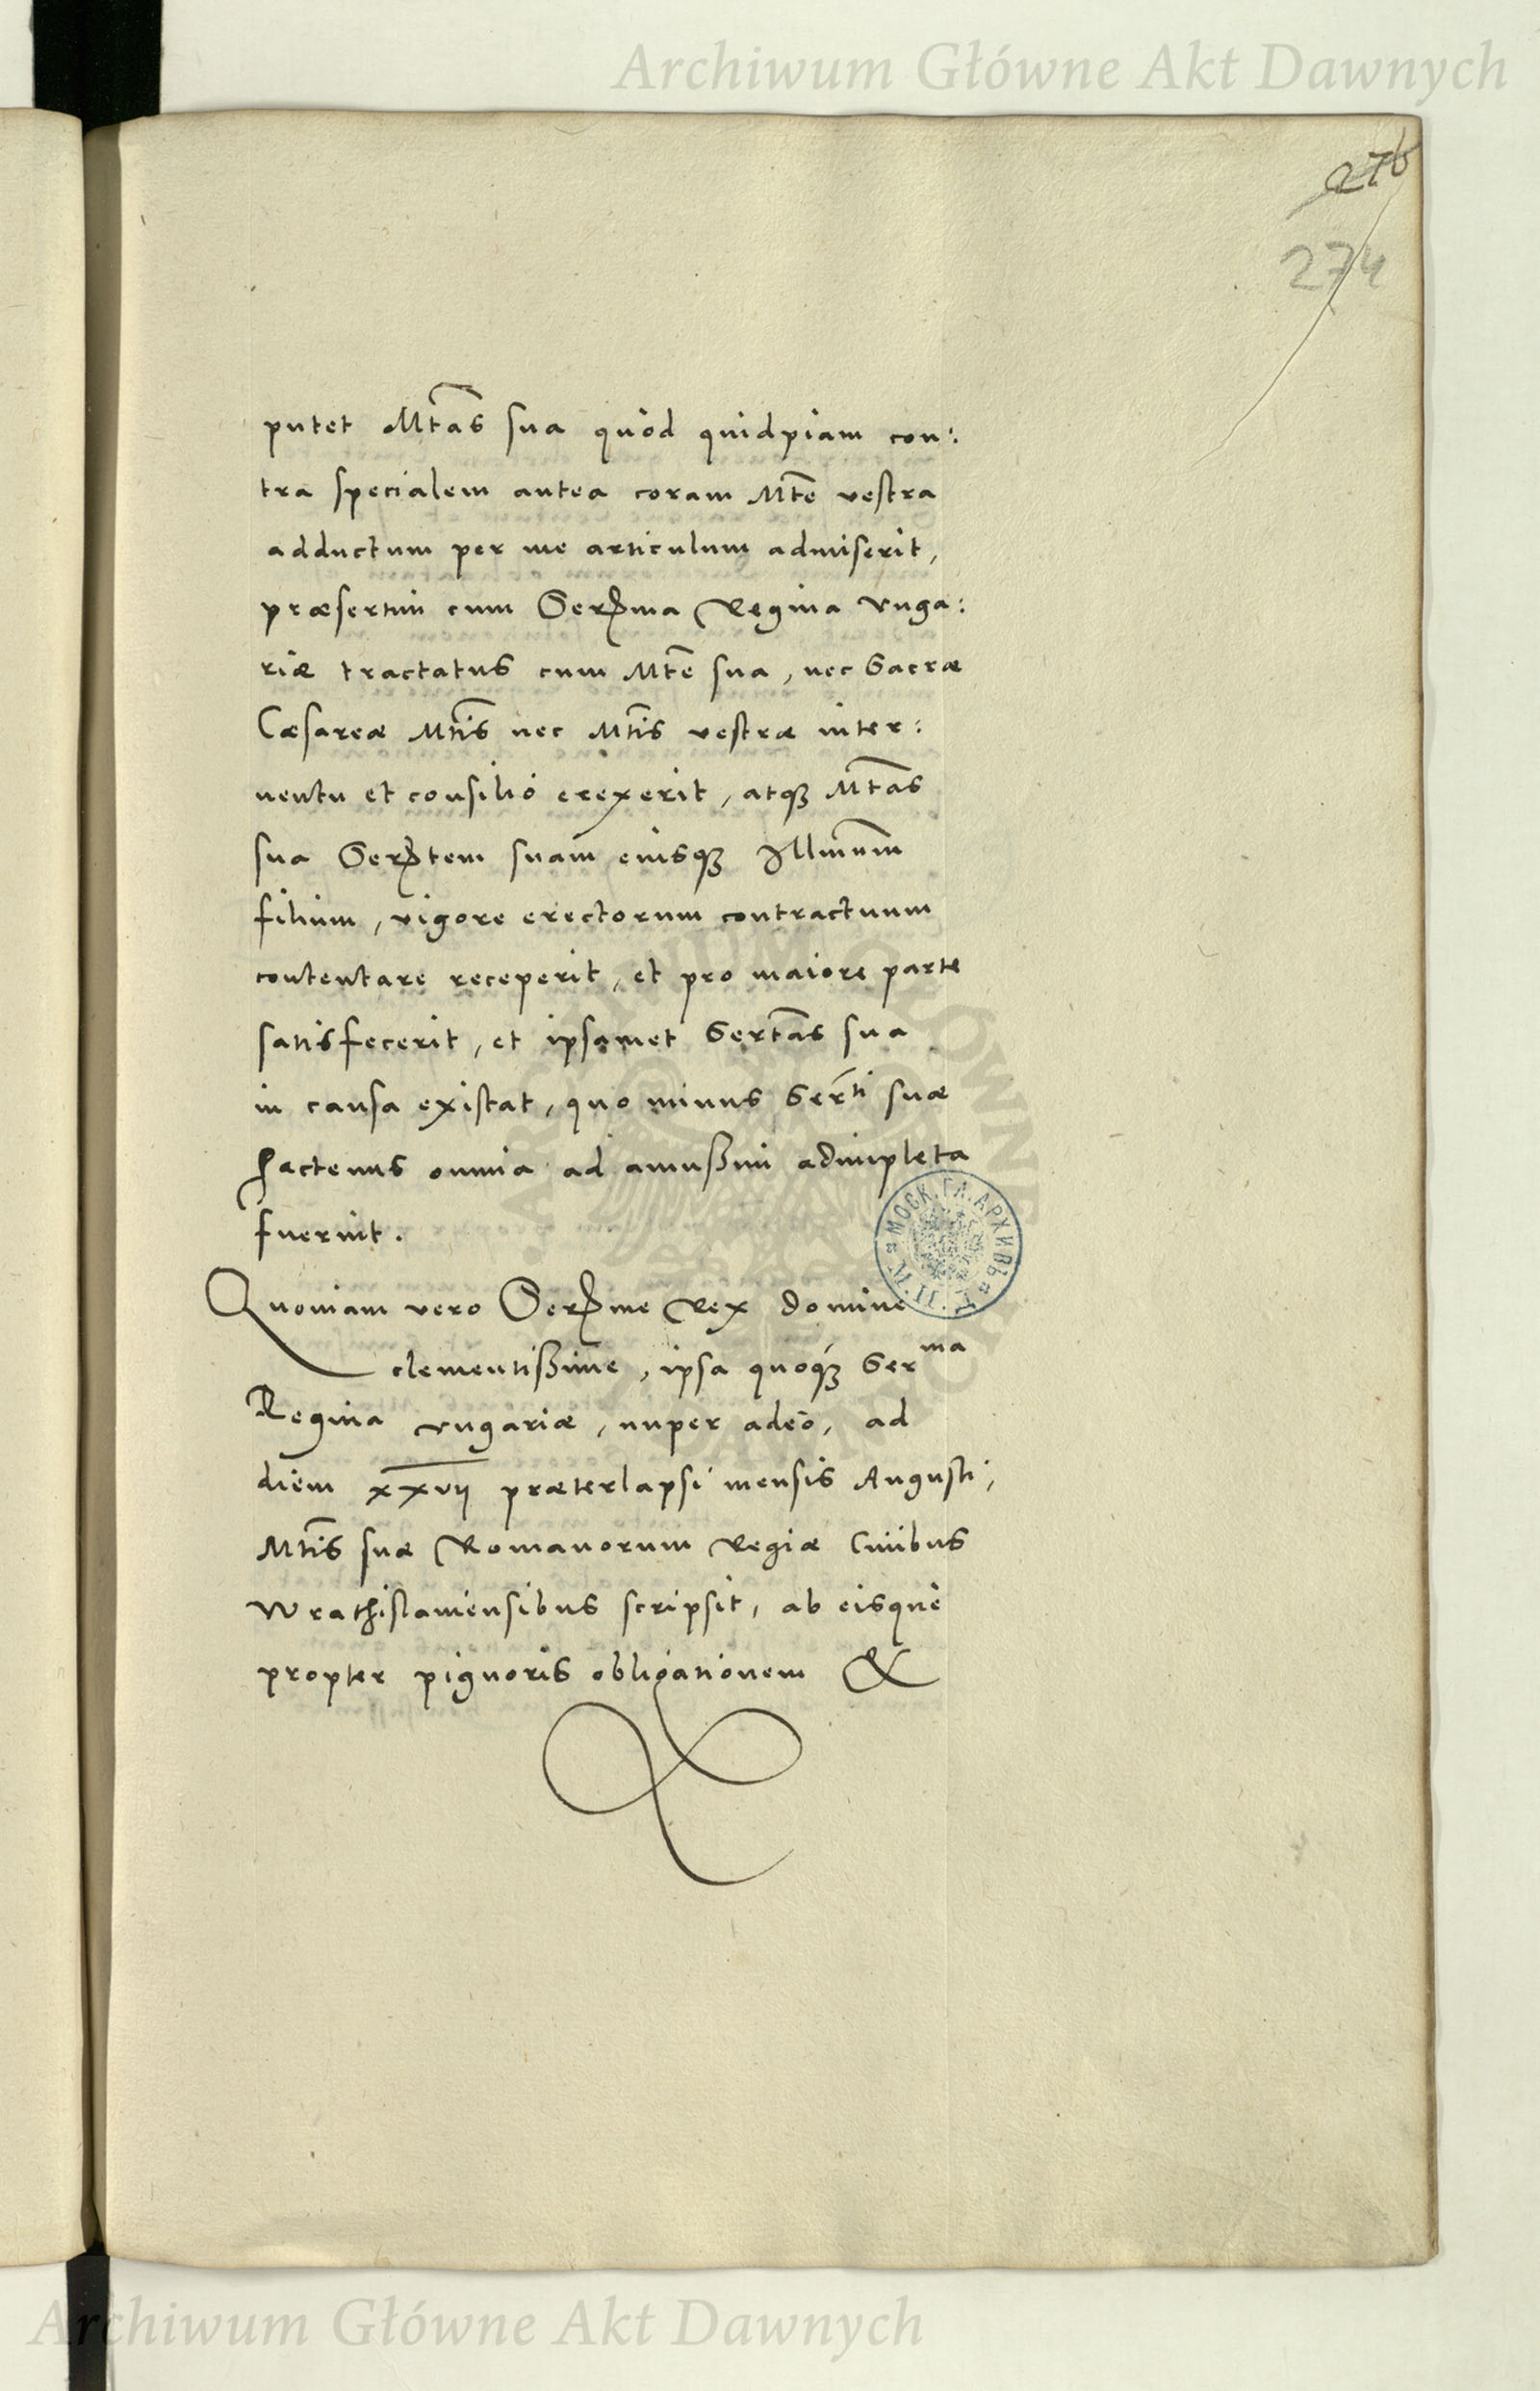 Archiwum Główne Akt Dawnych
276
274
putet Mtas sua quòd quidpiam con:
tra specialem antea coram Mte vestra
adductum per me articulum admiserit,
præsertim cum Serma Regina Vnga:
riæ tractatus cum Mte sua, nec Sacræ
Cæsareæ Mtis nec Mtis vestræ inter:
uentu et consilio erexerit, atq3 Mtas
sua Sertem suam eiusq3 Illmum
filium, vigore erectorum contractuum
contentare receperit, et pro maiore parte
satisfecerit, et ipsamet Sertas sua
in causa existat, quo minus Serti suæ
hactenus omnia ad amußim adimpleta
fuerint.
Quoniam vero Serme Rex Domine
clementißime, ipsa quoq3 Serma
Regina Vngariæ, nuper adeò, ad
diem xxvij præterlapsi mensis Augusti,
Mtis suæ Romanorum Regiæ Ciuibus
Wrathislauiensibus scripsit, ab eisque
propter pignoris obligationem &
МОСК. ГЛ. АРХИВЪ
Archiwum Główne Akt Dawnych